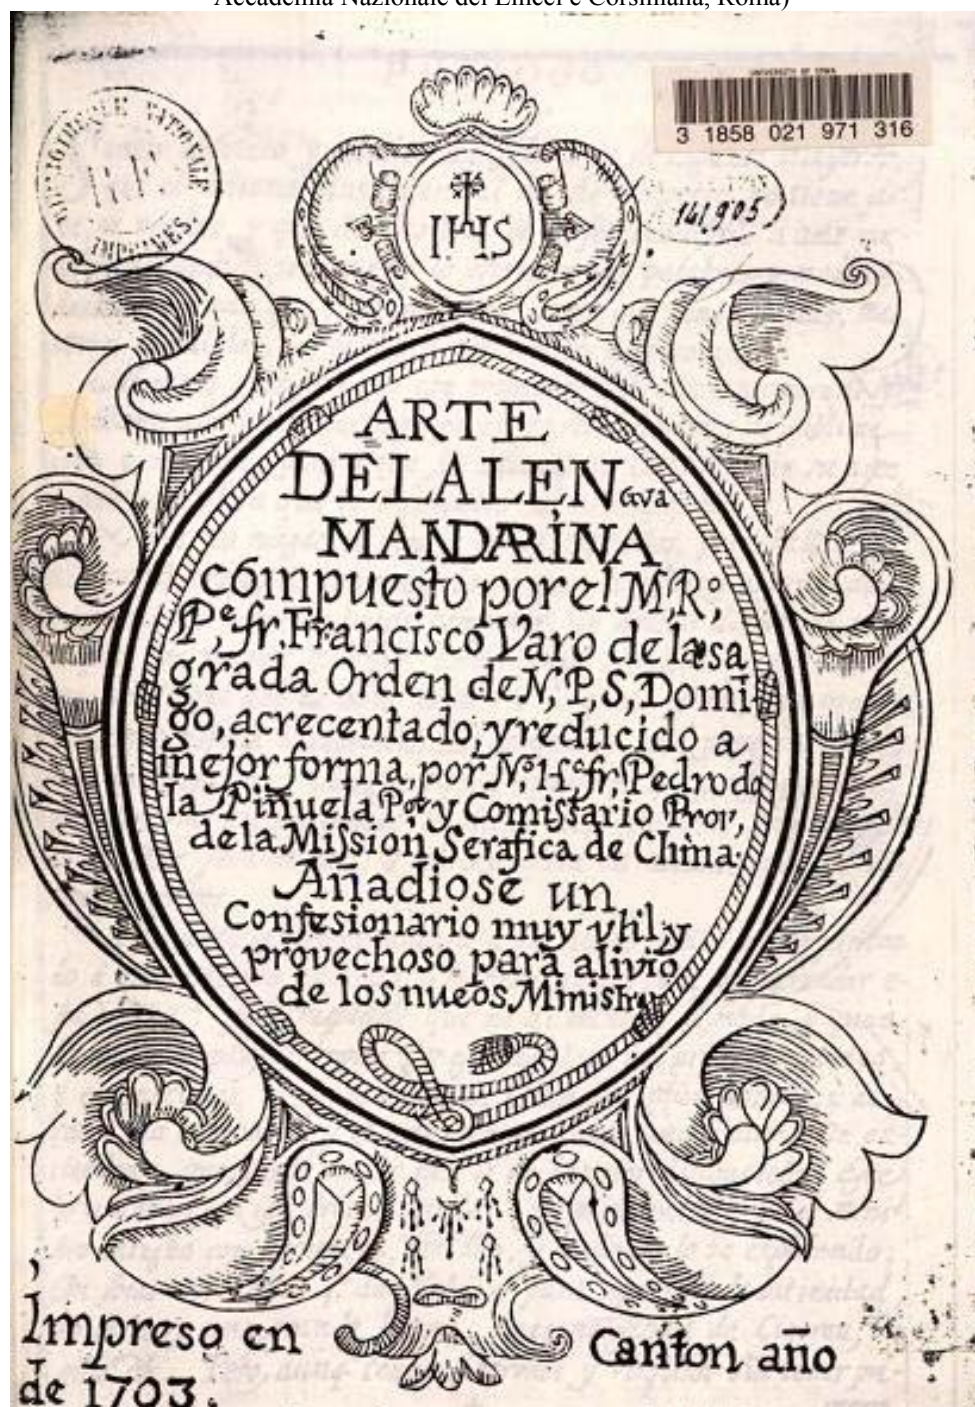 Accademia Nazionale dei Lincei e Corsiniana, Roma)
UNIVERSITY OF IOWA
3 1858 021 971 316
BIBLIOTHEQUE NATIONALE
IMPRIMES.
141905
IHS
ARTE
DELALENGVA
MANDARINA
cómpuesto por el M,R°,
P,e fr, Francisco Varo de la sa
grada Orden de N, P, S, Domī
go, acrecentado, y reducido a
mejor forma, por N°. H° fr, Pedro de
la Piñuela Por y Comissario Prov,
de la Mission Serafica de China.
Añadiose un
Confesionario muy vtil, y
provechoso para alivio
de los nueos Ministros
Impreso en Canton año
de 1703.